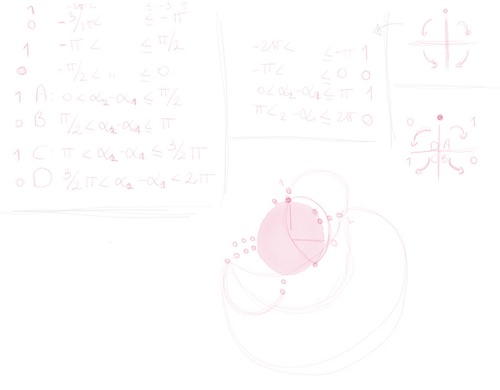 1 -2π< ≤ -3/2
0 -3/2π< ≤ -π
1 -π < ≤ π/2
0 -π/2 < " ≤ 0
1 A: 0 < α2-α1 ≤ π/2
0 B π/2 < α2-α1 ≤ π
1 C π < α2-α1 ≤ 3/2 π
0 D 3/2 π < α2-α1 < 2π
-2π< ≤ -π 1
-π < ≤ 0 0
0 < α2-α1 ≤ π 1
π < 2 -α1 ≤ 2π 0
0 1
1 0